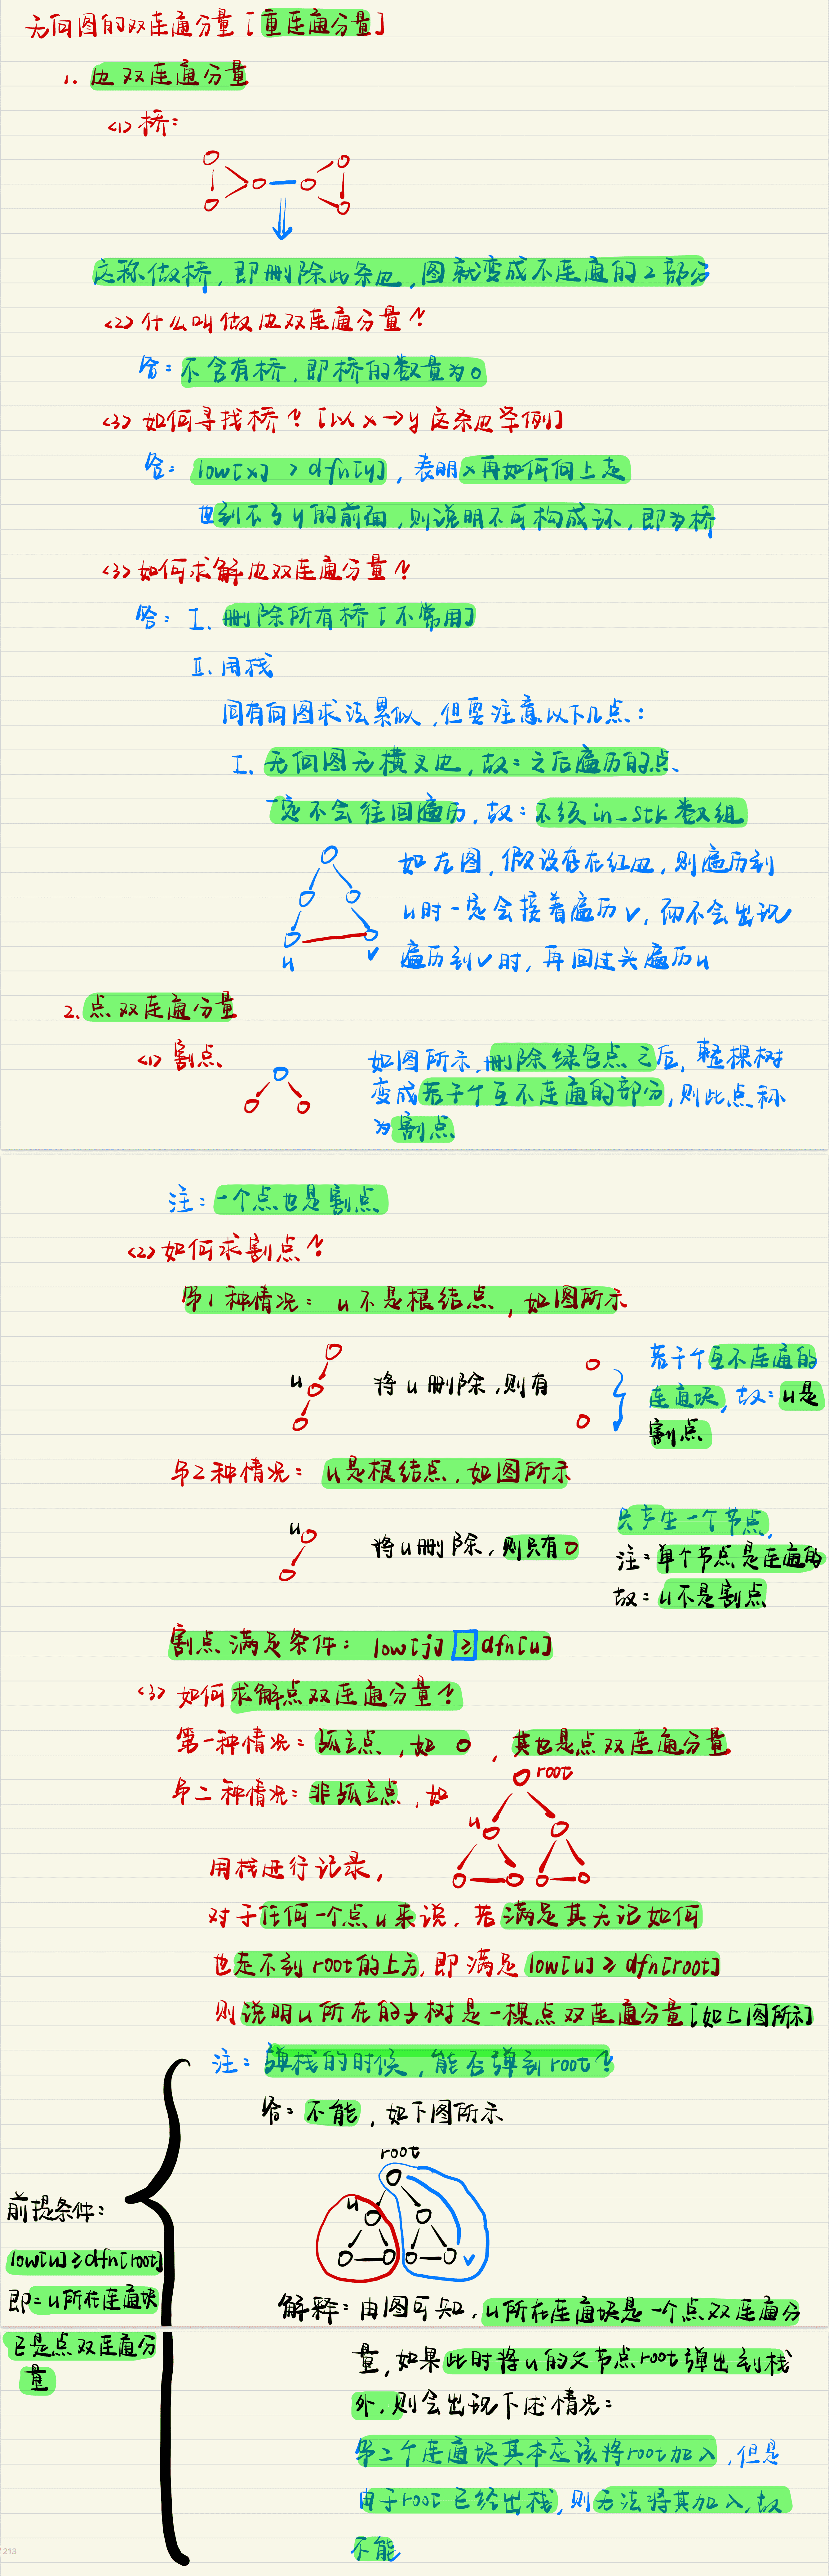 无向图的双连通分量 [重连通分量]
1. 边双连通分量
<1> 桥：
这称做桥，即删除此条边，图就变成不连通的2部分
<2> 什么叫做边双连通分量？
答：不含有桥，即桥的数量为0
<3> 如何寻找桥？[以x→y这条边举例]
答：low[x] > dfn[y]，表明x再如何向上走
也到不了y的前面，则说明不可构成环，即为桥
<3> 如何求解边双连通分量？
答：I. 删除所有桥 [不常用]
II. 用栈
同有向图求法累似，但要注意以下几点：
I. 无向图无横叉边，故：之后遍历的点、
一定不会往回遍历，故：不须in_stk数组
如左图，假设存在红边，则遍历到
u时一定会接着遍历v，而不会出现
遍历到v时，再回过头遍历u
u
v
2. 点双连通分量
<1> 割点
如图所示，删除绿色点之后，整棵树
变成若干个互不连通的部分，则此点称
为割点
注：一个点也是割点
<2> 如何求割点？
第1种情况：u不是根结点，如图所示
u
将u删除，则有
若干个互不连通的
连通块，故：u是
割点
第2种情况：u是根结点，如图所示
u
将u删除，则只有
只产生一个节点，
注：单个节点是连通的
故：u不是割点
割点满足条件：low[j] ≥ dfn[u]
<3> 如何求解点双连通分量？
第一种情况：孤立点，如 ，其也是点双连通分量
第二种情况：非孤立点，如
root
u
用栈进行记录，
对于任何一个点u来说，若满足其无论如何
也走不到root的上方，即满足low[u] ≥ dfn[root]
则说明u所在的子树是一棵点双连通分量[如上图所示]
注：弹栈的时候，能否弹到root？
答：不能，如下图所示
root
u
v
前提条件：
low[u] ≥ dfn[root]
即：u所在连通块
已是点双连通分
量
解释：由图可知，u所在连通块是一个点双连通分
量，如果此时将u的父节点root弹出到栈
外，则会出现下述情况：
第二个连通块其本应该将root加入，但是
由于root已经出栈，则无法将其加入，故
不能
213